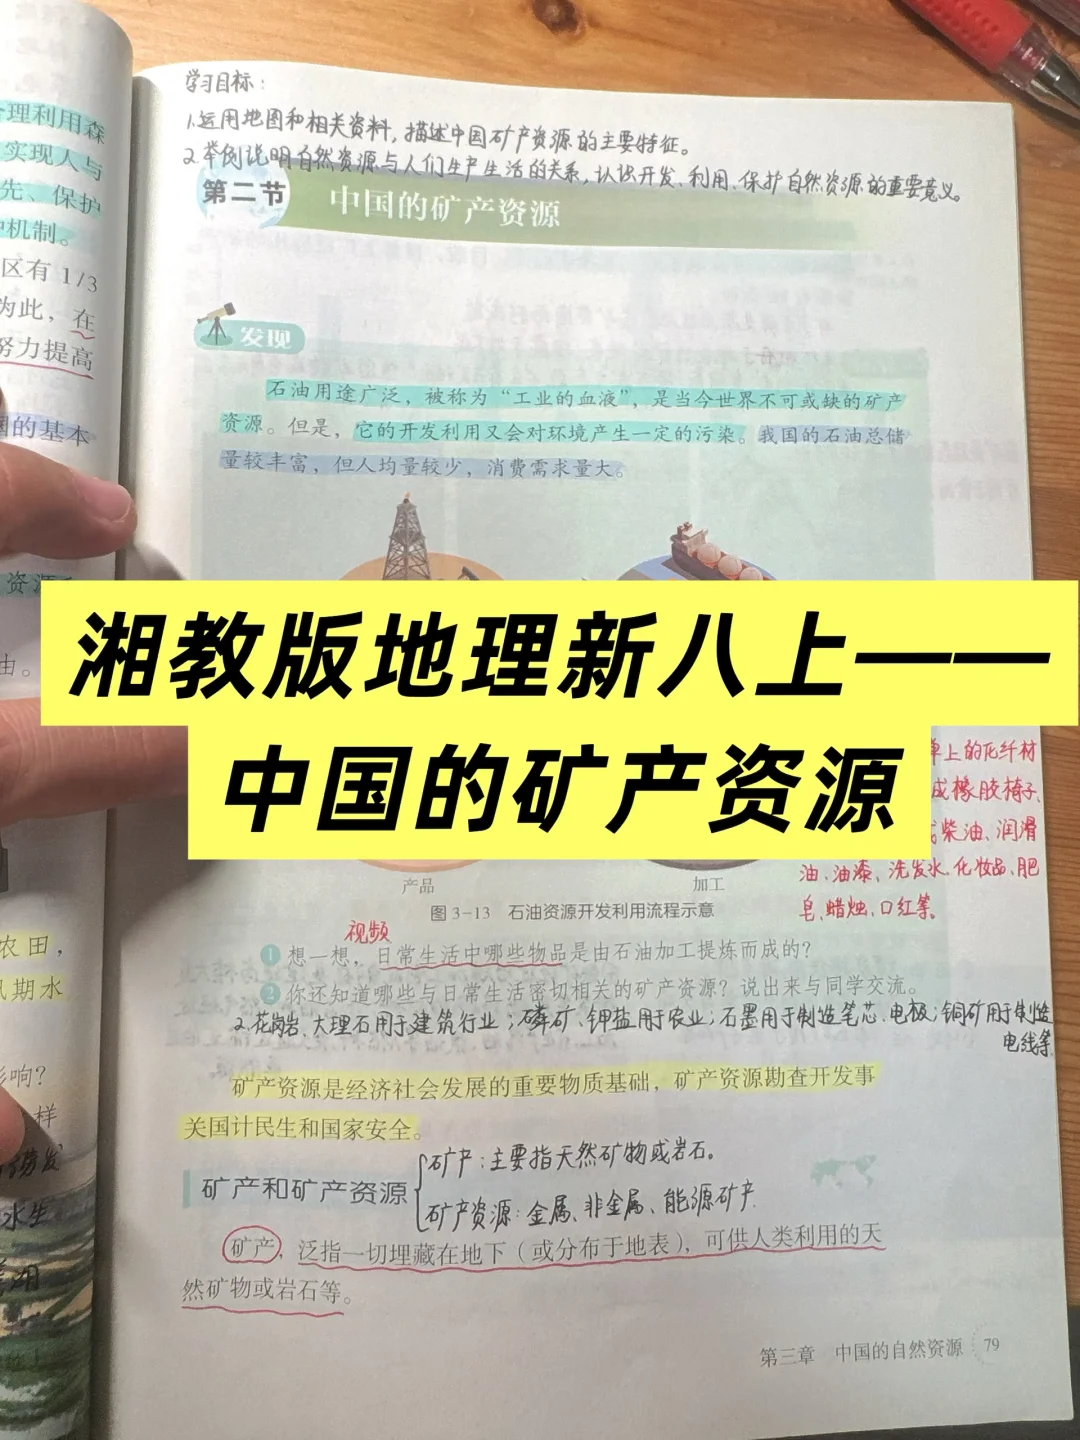 学习目标：
1.运用地图和相关资料，描述中国矿产资源的主要特征。
2.举例说明自然资源与人们生产生活的关系，认识开发、利用、保护自然资源的重要意义。
第二节 中国的矿产资源
理利用森
实现人与
先、保护
机制。
区有 1/3
为此，在
努力提高
国的基本
资源
由。
农田，
期水
影响？
样
发现
石油用途广泛，被称为“工业的血液”，是当今世界不可或缺的矿产
资源。但是，它的开发利用又会对环境产生一定的污染。我国的石油总储
量较丰富，但人均量较少，消费需求量大。
湘教版地理新八上——
中国的矿产资源
单上的化纤材
成橡胶椅子、
柴油、润滑
油、油漆、洗发水、化妆品、肥
皂、蜡烛、口红等。
产品 加工
图 3-13 石油资源开发利用流程示意
视频
1 想一想，日常生活中哪些物品是由石油加工提炼而成的？
2 你还知道哪些与日常生活密切相关的矿产资源？说出来与同学交流。
2.花岗岩、大理石用于建筑行业；磷矿、钾盐用于农业；石墨用于制造笔芯、电极；铜矿用于制造
电线等
矿产资源是经济社会发展的重要物质基础，矿产资源勘查开发事
关国计民生和国家安全。
矿产和矿产资源
矿产：主要指天然矿物或岩石。
矿产资源：金属、非金属、能源矿产
矿产，泛指一切埋藏在地下（或分布于地表），可供人类利用的天
然矿物或岩石等。
第三章 中国的自然资源 79